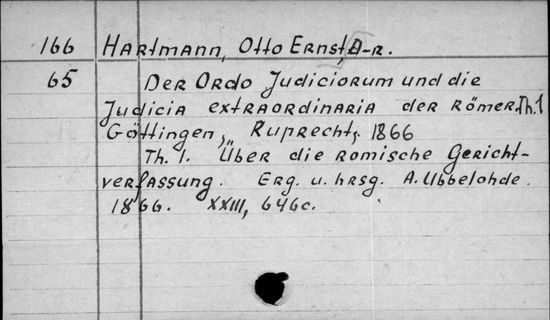 166 Hartmann, Otto Ernst, D-r.
65 Der Ordo Judiciorum und die
Judicia extraordinaria der Römer. Th. 1
Göttingen, Ruprecht, 1866
Th. 1. Über die romische Gericht-
verfassung. Erg. u. hrsg. A. Ubbelohde.
1866. XXIII, 646c.